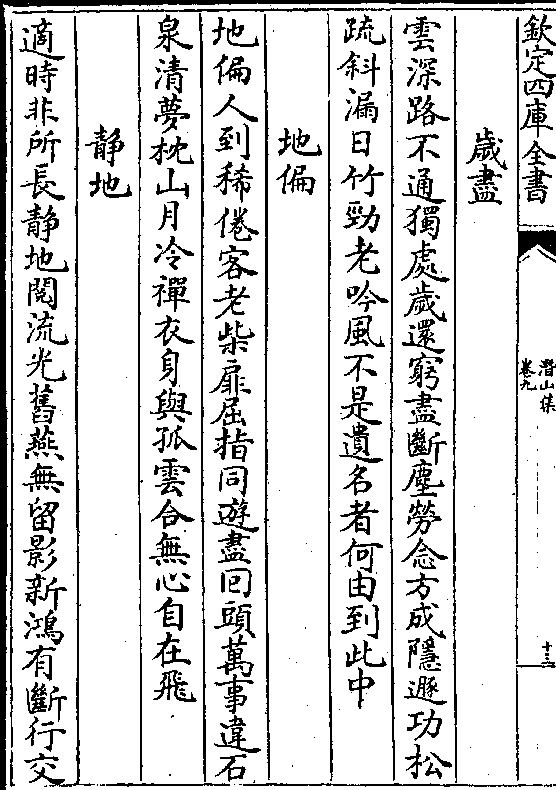 欽定四庫全書
潛山集
卷九
十三
歲盡
雲深路不通獨處歲還窮盡斷塵勞念方成隱遯功松
疏斜漏日竹勁老吟風不是遺名者何由到此中
地偏
地偏人到稀倦客老柴扉屈指同遊盡回頭萬事違石
泉清夢枕山月冷禪衣身與孤雲合無心自在飛
靜地
適時非所長靜地閱流光舊燕無留影新鴻有斷行交